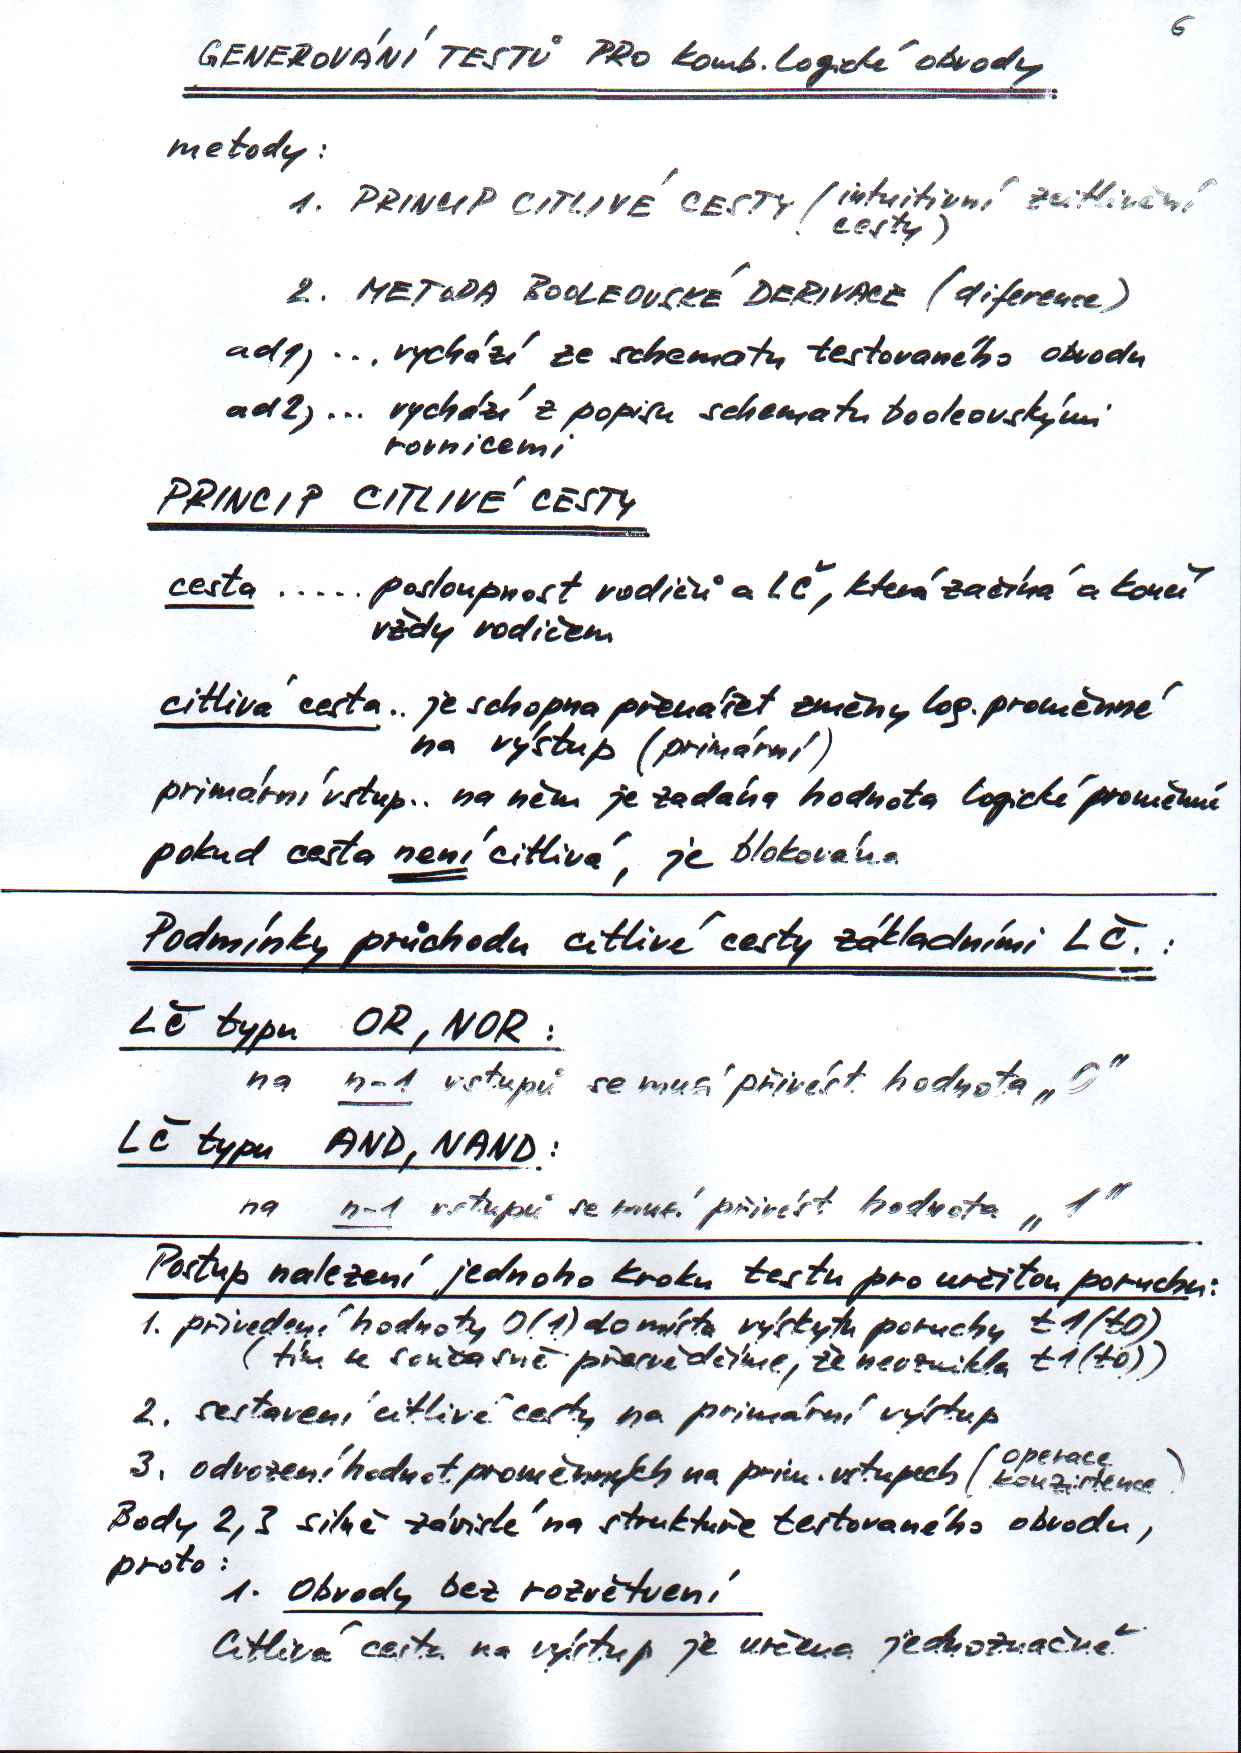 6
GENEROVÁNÍ TESTŮ PRO komb. logické obvody
metody:
1. PRINCIP CITLIVÉ CESTY (intuitivní zcitlivění
cesty)
2. METODA BOOLEOVSKÉ DERIVACE (diference)
ad1) ... vychází ze schematu testovaného obvodu
ad2) ... vychází z popisu schematu booleovskými
rovnicemi
PRINCIP CITLIVÉ CESTY
cesta ..... posloupnost vodičů a LČ, která začíná a končí
vždy vodičem
citlivá cesta .. je schopna přenášet změny log. proměnné
na výstup (primární)
primární vstup .. na něm je zadána hodnota logické proměnné
pokud cesta není citlivá, je blokována
Podmínky průchodu citlivé cesty základními LČ. :
LČ typu OR, NOR :
na n-1 vstupů se musí přivést hodnota „0"
LČ typu AND, NAND :
na n-1 vstupů se musí přivést hodnota „1"
Postup nalezení jednoho kroku testu pro určitou poruchu:
1. přivedení hodnoty 0(1) do místa výskytu poruchy t1(t0)
(tím se současně přesvědčíme, že nevznikla t1(t0))
2. sestavení citlivé cesty na primární výstup
3. odvození hodnot proměnných na prim. vstupech (operace
konzistence)
Body 2,3 silně závislé na struktuře testovaného obvodu,
proto :
1. Obvody bez rozvětvení
Citlivá cesta na výstup je určena jednoznačně